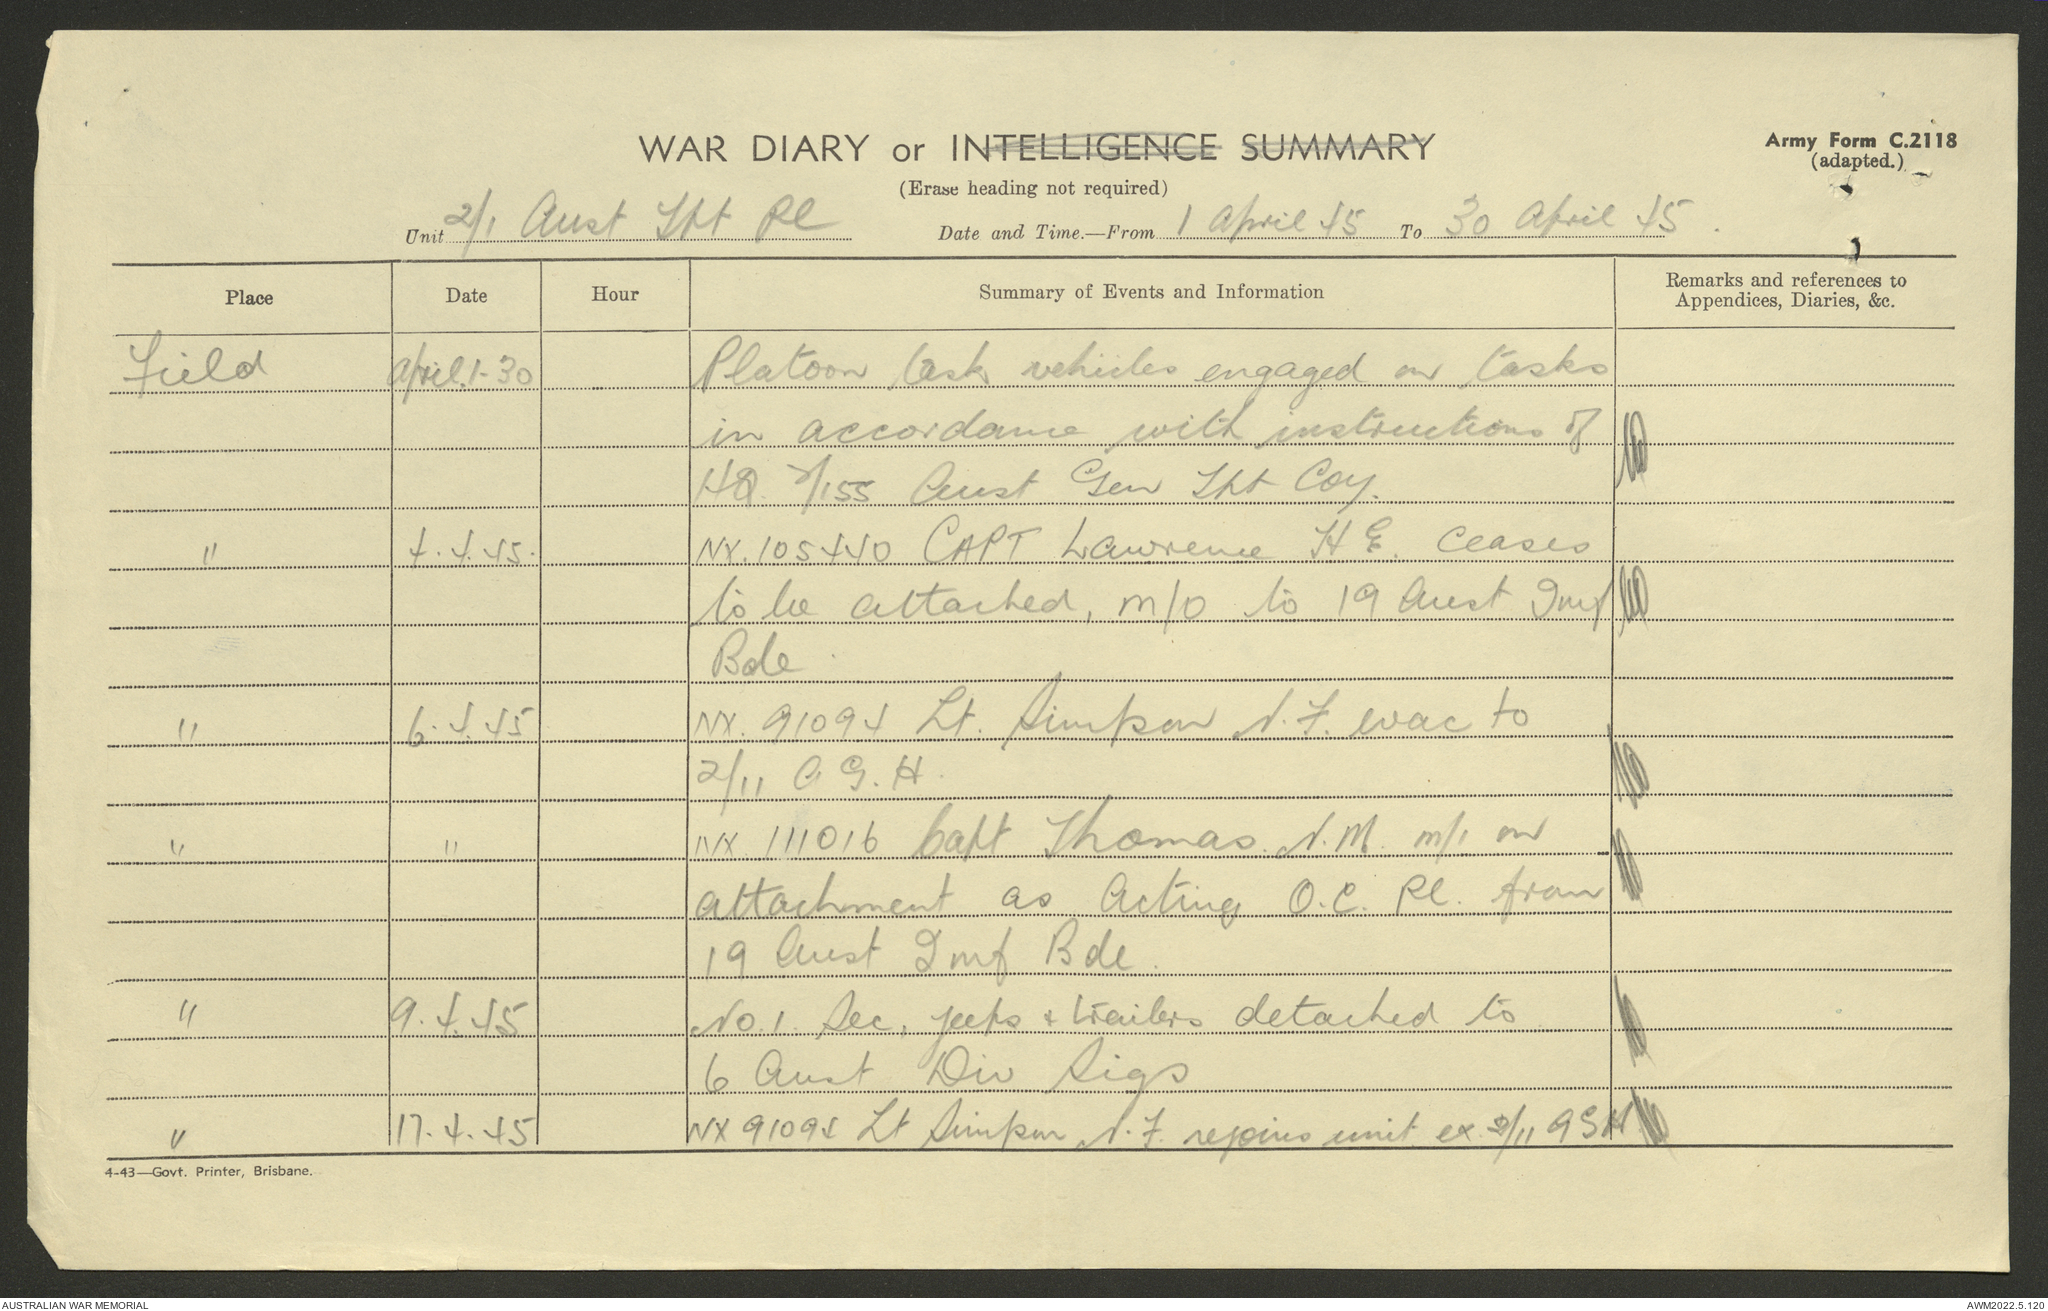 WAR DIARY or INTELLIGENCE SUMMARY
Army Form C.2118
(adapted.)
(Erase heading not required)
Unit 2/1 Aust Tpt Pl Date and Time.—From 1 April 45 To 30 April 45.
Place Date Hour Summary of Events and Information Remarks and references to Appendices, Diaries, &c.
Field April.1-30 Platoon task vehicles engaged on tasks
in accordance with instructions of
HQ. 2/155 Aust Gen Tpt Coy.
" 4.4.45. NX.105440 CAPT Lawrence H E. ceases
to be attached, m/o to 19 Aust Inf
Bde.
" 6.4.45 NX.91094 Lt. Simpson N.F. evac to
2/11 A G.H.
" " NX 111016 Capt Thomas. N.M. m/i on
attachment as Acting O.C. Pl. from
19 Aust Inf Bde.
" 9.4.45 No.1. Sec, jeeps & trailers detached to
6 Aust Div Sigs
" 17.4.45 NX 91094 Lt Simpson N.F. rejoins unit ex 2/11 AGH
4-43—Govt. Printer, Brisbane.
AUSTRALIAN WAR MEMORIAL
AWM2022.5.120